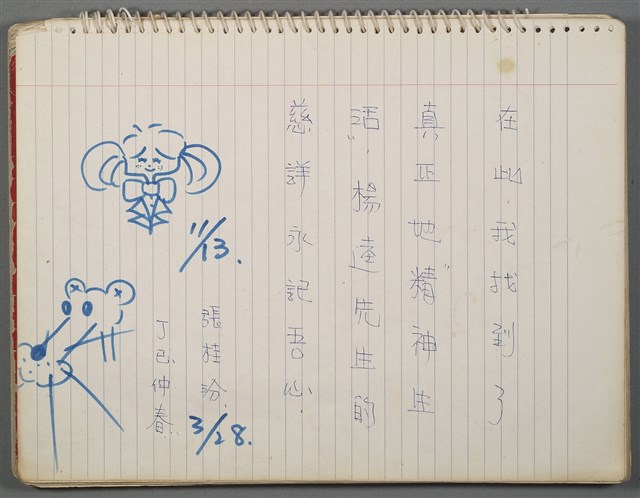 在此，我找到了
真正地"精神生
活"，楊逵先生的
慈詳永記吾心．
張桂汾．
3/28.
丁巳仲春．
11/13.